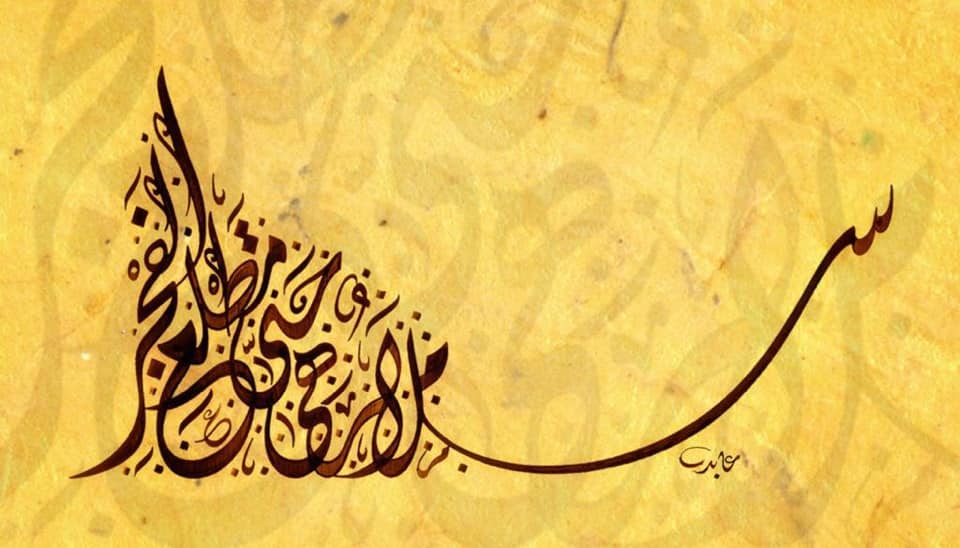 سلام هي حتى مطلع الفجر
عابد